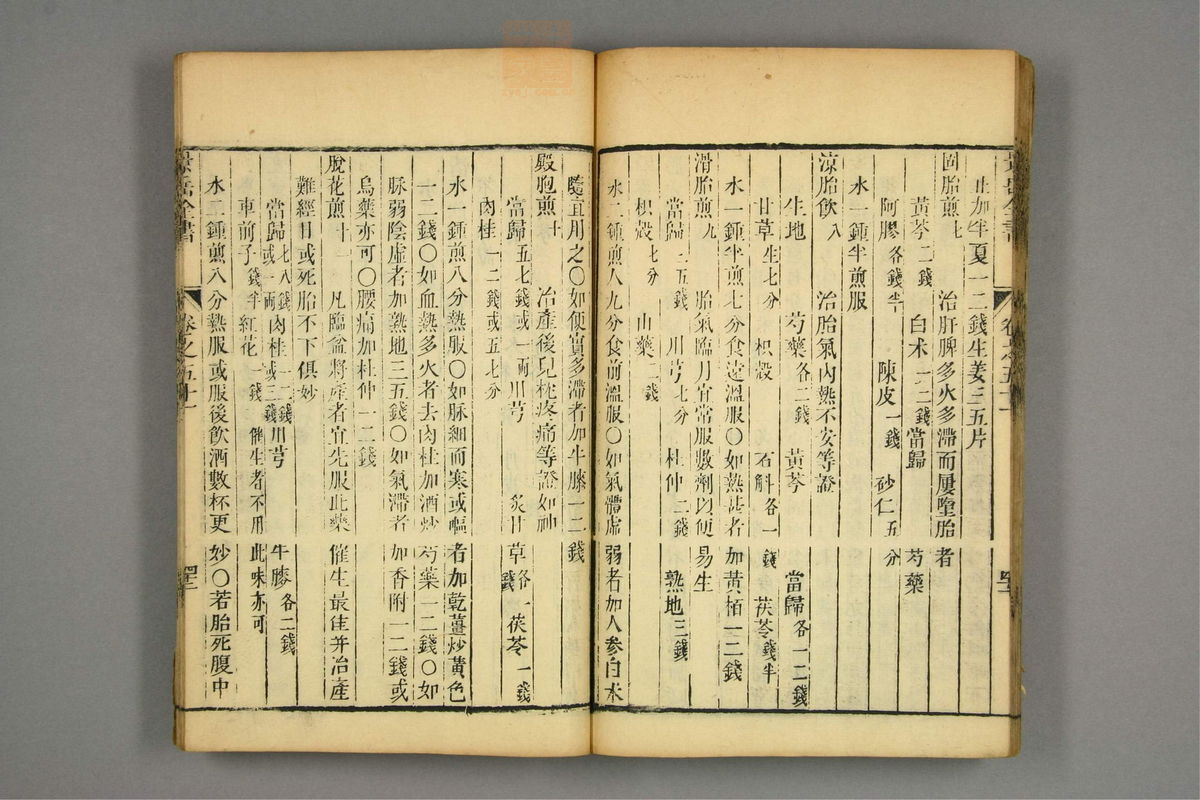 止加半夏一二錢生姜三五片
固胎煎七 治肝脾多火多滯而屢墮胎者
黃芩二錢 白朮一二錢 當歸 芍藥
阿膠各錢半 陳皮一錢 砂仁五分
水一鍾半煎服
涼胎飲八 治胎氣內熱不安等證
生地 芍藥各二錢 黃芩 當歸各一二錢
甘草生七分 枳殼 石斛各一錢 茯苓錢半
水一鍾半煎七分食遠溫服〇如熱甚者加黃栢一二錢
滑胎煎九 胎氣臨月宜常服數劑以便易生
當歸三五錢 川芎七分 杜仲二錢 熟地三錢
枳殼七分 山藥二錢
水二鍾煎八九分食前溫服〇如氣體虛弱者加人參白朮
隨宜用之〇如便實多滯者加牛膝一二錢
殿胞煎十 治產後兒枕疼痛等證如神
當歸五七錢或一兩 川芎 炙甘草各一錢 茯苓一錢
肉桂一二錢或五七分
水一鍾煎八分熱服〇如脉細而寒或嘔者加乾薑炒黃色
一二錢〇如血熱多火者去肉桂加酒炒芍藥一二錢〇如
脉弱陰虛者加熟地三五錢〇如氣滯者加香附一二錢或
烏藥亦可〇腰痛加杜仲一二錢
脫花煎十一 凡臨盆將產者宜先服此藥催生最佳并治產
難經日或死胎不下俱妙
當歸七八錢或一兩 肉桂一二錢或三錢 川芎 牛膝各二錢
車前子錢半 紅花一錢 催生者不用此味亦可
水二鍾煎八分熱服或服後飲酒數杯更妙〇若胎死腹中
景岳全書 卷之五十一